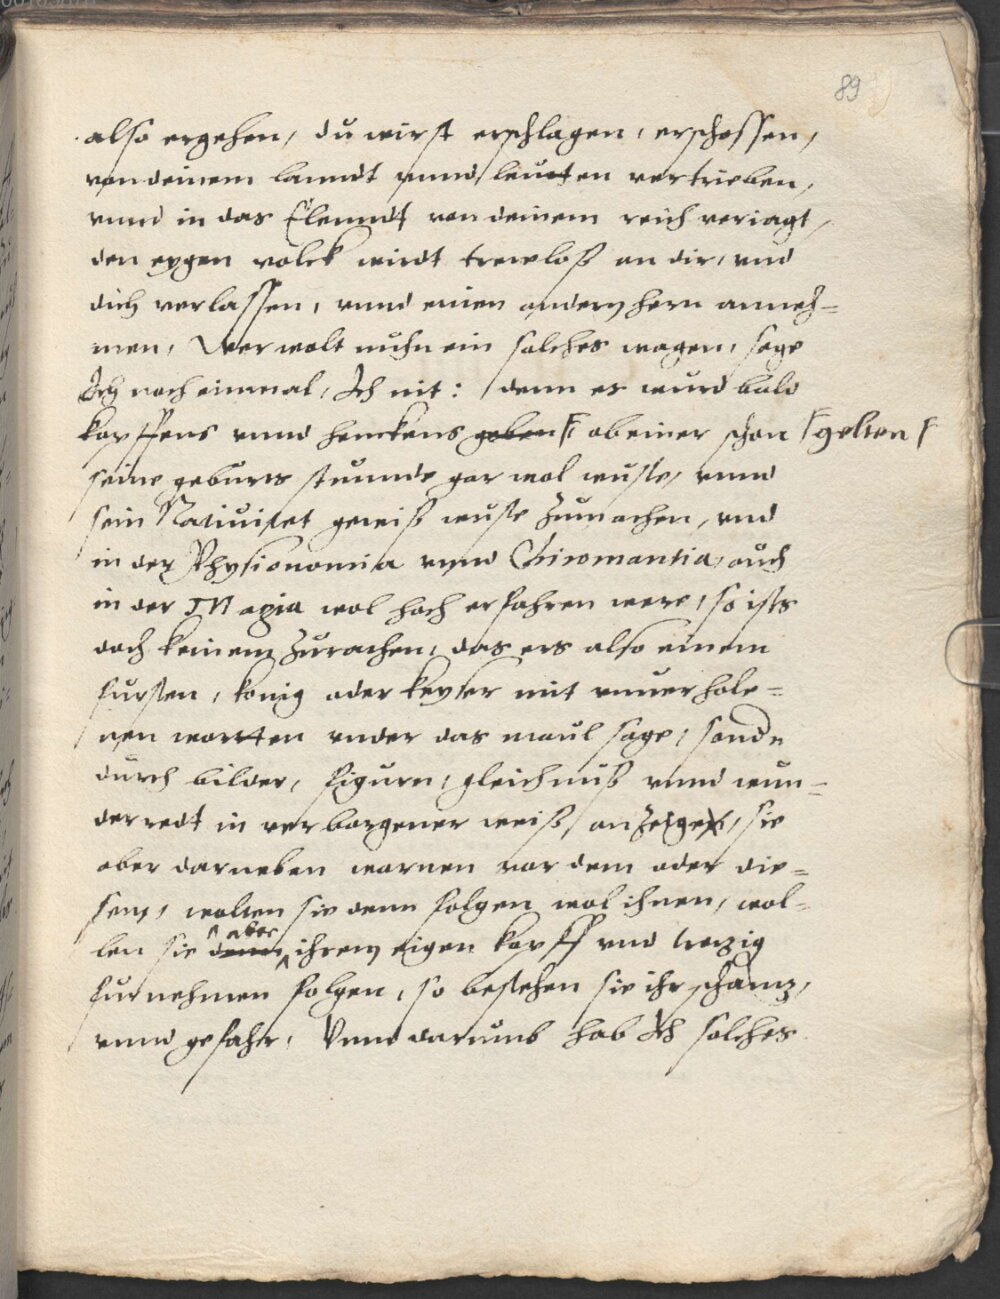 89
also ergehen, du wirst erschlagen, erschossen,
von deinem lanndt vnnd leutten vertrieben,
vnnd in das Elenndt von deinem reich veriagt,
den eygen volck wirdt trewloß an dir, vnd
dich verlassen, vnnd einen andern hern anneh=
men, Wer wolt nuhn ein solches wagen, sage
Ich noch einmal, Ich nit: denn es wurd bald
kopffens vnnd henckens geben, ob einer schon gelten
seine geburts stuunde gar wol wuste, vnnd
sein Natiuitet gewiß wuste zumachen, vnd
in der Physionomia vnnd Chiromantia, auch
in der Magia wol hoch erfahren were, so ists
doch keinem zurachen, das ers also einem
fursten, konig oder keyser mit vnuerhole=
nen wortten vnder das maul sage, sondn
durch bilder, figurn, gleichnuß vnnd wun=
derredt in verborgener weiß, anzeige, sie
aber darneben warnen vor dem oder die=
sem, wolten sie denn folgen wol ihnen, wol=
aber
len sie denn ihrem eigen kopff vnd trozig
furnehmen folgen, so bestehen sie ihr schanz,
vnnd gefahr, Vnnd darumb hab Ich solches